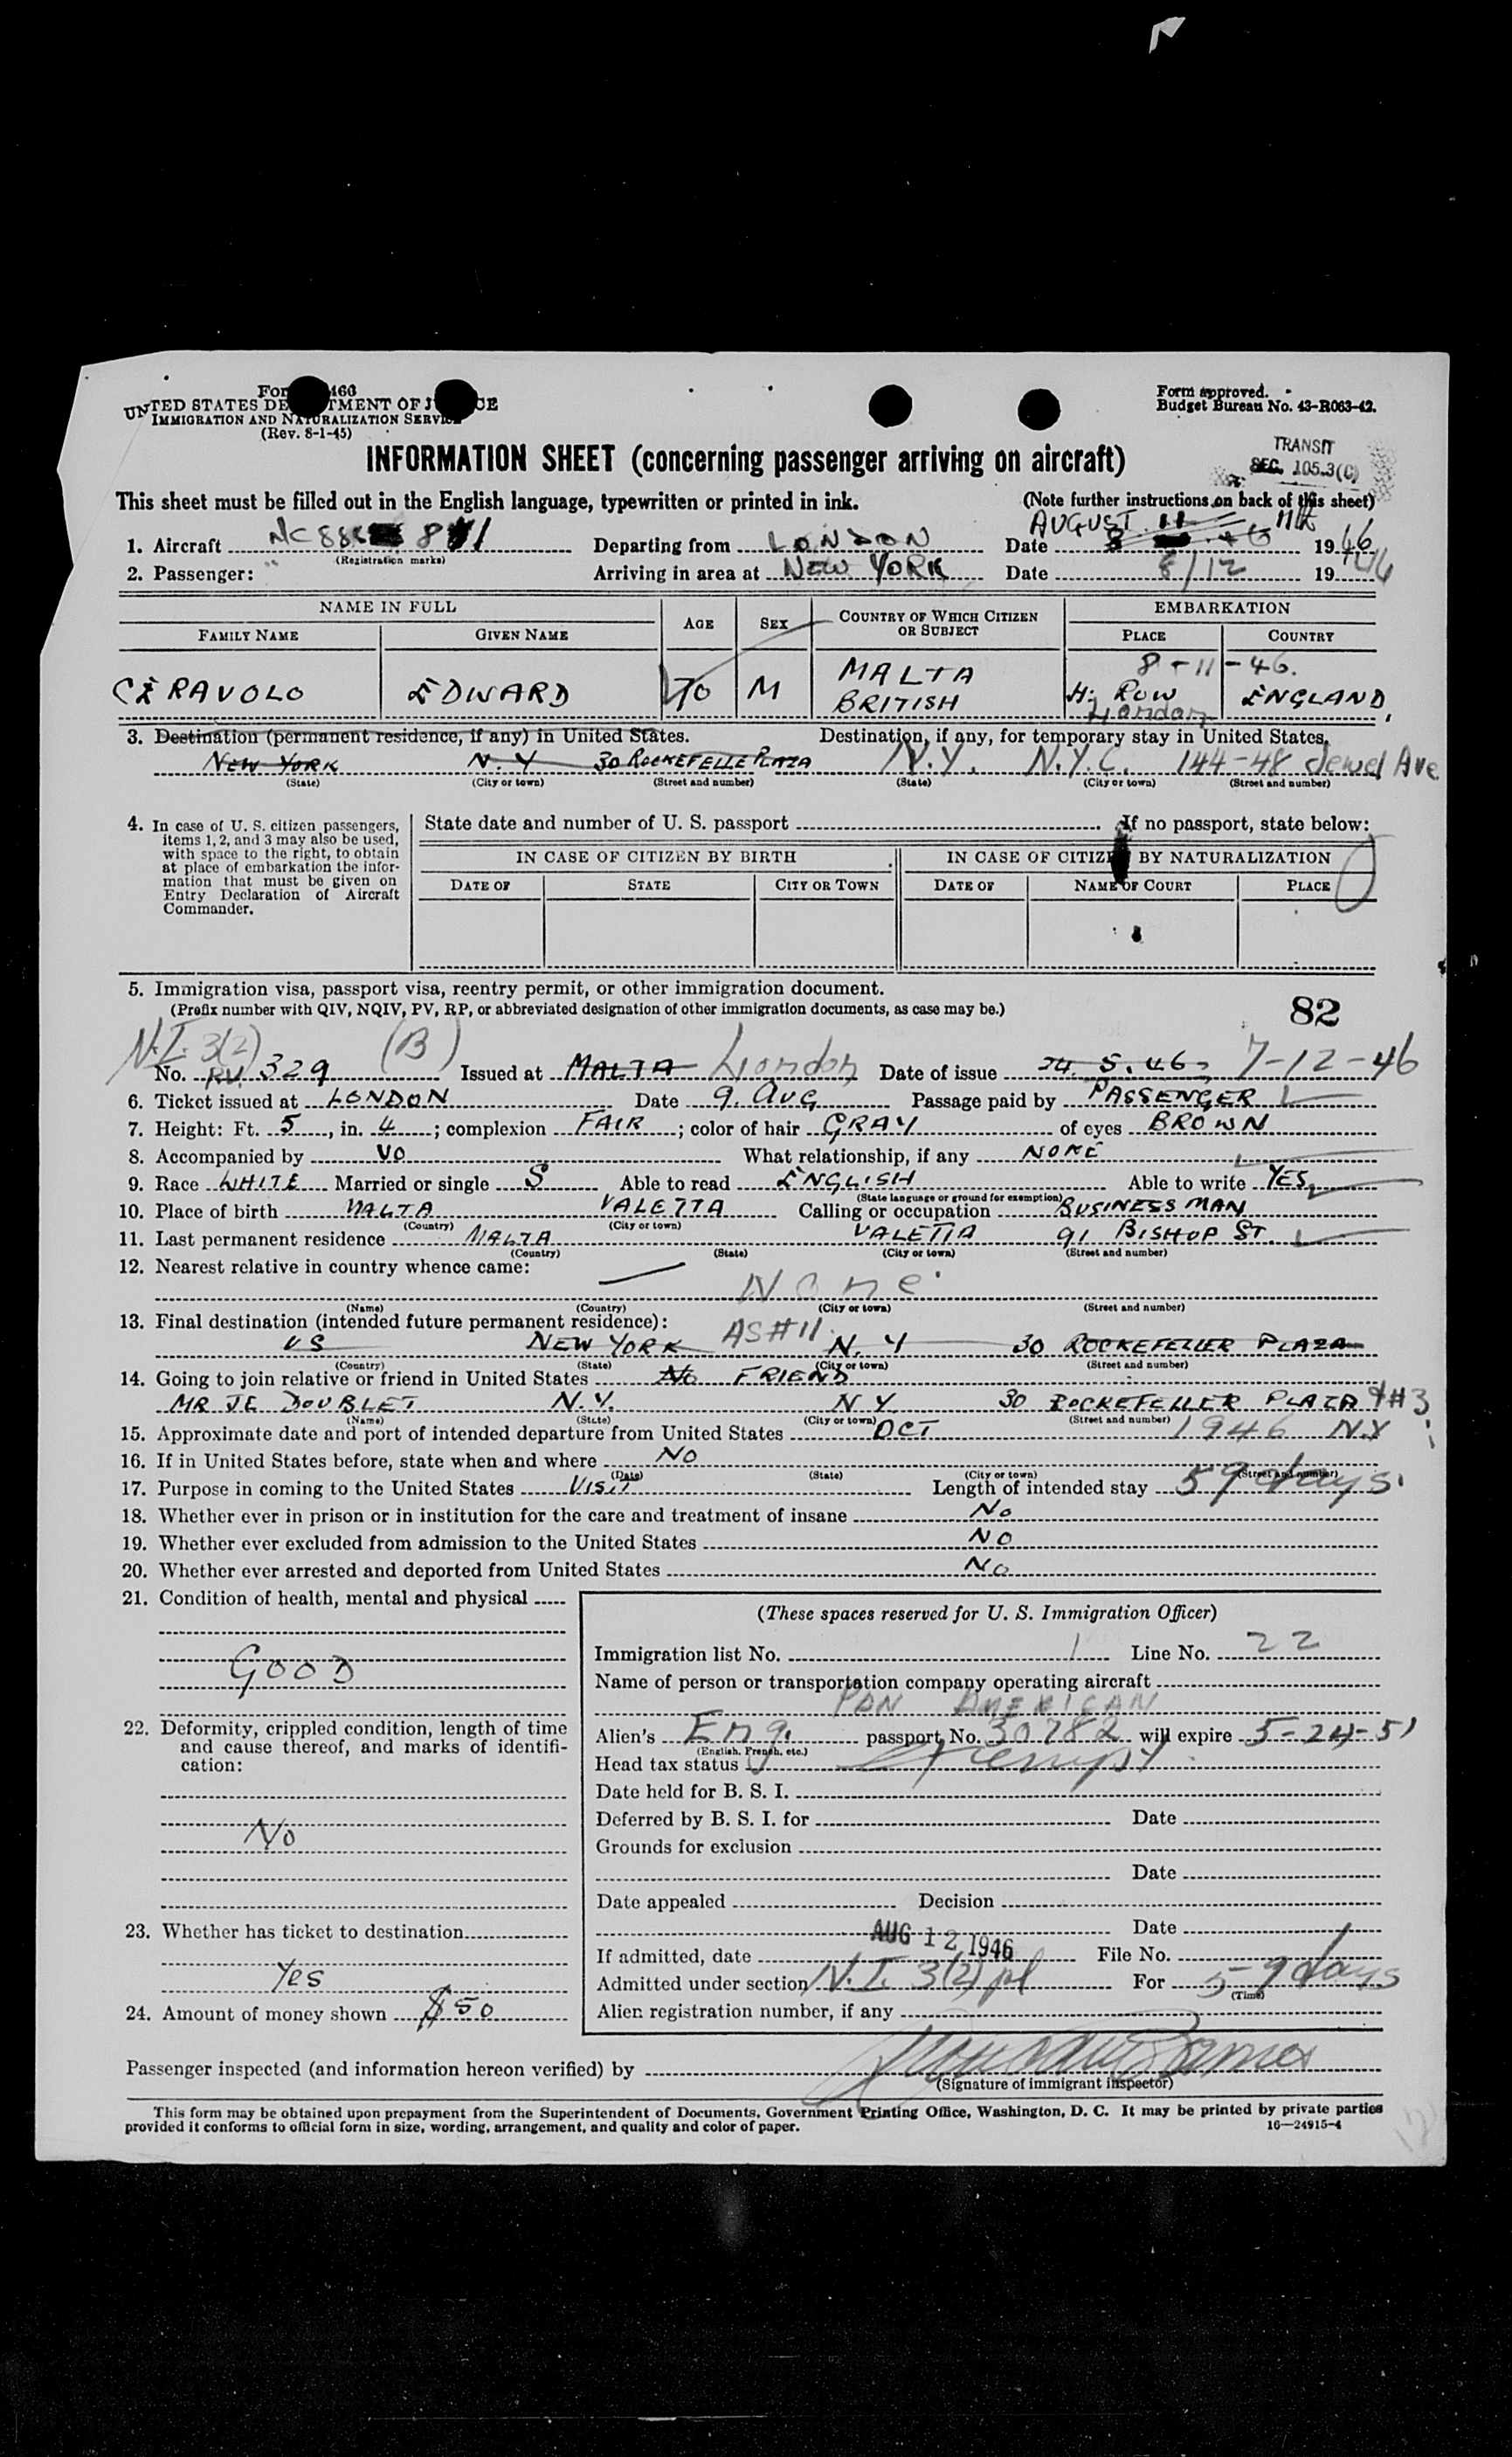 For 466
UNITED STATES DE TMENT OF J CE
IMMIGRATION AND NATURALIZATION SERVICE
(Rev. 8-1-45)
Form approved.
Budget Bureau No. 43-R063-42.
INFORMATION SHEET (concerning passenger arriving on aircraft)
TRANSIT
SEC. 105.3(C)
This sheet must be filled out in the English language, typewritten or printed in ink. (Note further instructions on back of this sheet)
AUGUST 11 11th
1. Aircraft NC88 8 1 Departing from LONDON Date 1946
(Registration marks)
2. Passenger: Arriving in area at NEW YORK Date 8/12 1946
NAME IN FULL AGE SEX COUNTRY OF WHICH CITIZEN OR SUBJECT EMBARKATION
FAMILY NAME GIVEN NAME PLACE COUNTRY
MALTA 8-11-46.
CERAVOLO EDWARD 70 M BRITISH H. ROW ENGLAND,
London
3. Destination (permanent residence, if any) in United States. Destination, if any, for temporary stay in United States.
NEW YORK N.Y 30 ROCKEFELLE PLAZA N.Y. N.Y.C. 144-48 Jewel Ave
(State) (City or town) (Street and number) (State) (City or town) (Street and number)
4. In case of U. S. citizen passengers, items 1, 2, and 3 may also be used, with space to the right, to obtain at place of embarkation the information that must be given on Entry Declaration of Aircraft Commander.
State date and number of U. S. passport If no passport, state below:
IN CASE OF CITIZEN BY BIRTH IN CASE OF CITIZEN BY NATURALIZATION
DATE OF STATE CITY OR TOWN DATE OF NAME OF COURT PLACE
5. Immigration visa, passport visa, reentry permit, or other immigration document.
(Prefix number with QIV, NQIV, PV, RP, or abbreviated designation of other immigration documents, as case may be.)
82
N.I. 3(2) (B)
No. P.V. 329 Issued at MALTA London Date of issue 24.5.46 7-12-46
6. Ticket issued at LONDON Date 9. Aug Passage paid by PASSENGER
7. Height: Ft. 5, in. 4; complexion FAIR; color of hair GRAY of eyes BROWN
8. Accompanied by NO What relationship, if any NONE
9. Race WHITE Married or single S Able to read ENGLISH Able to write YES
(State language or ground for exemption)
10. Place of birth MALTA VALETTA Calling or occupation BUSINESS MAN
(Country) (City or town)
11. Last permanent residence MALTA VALETTA 91 BISHOP ST.
(Country) (State) (City or town) (Street and number)
12. Nearest relative in country whence came:
None
(Name) (Country) (City or town) (Street and number)
13. Final destination (intended future permanent residence):
US NEW YORK AS#11 N.Y 30 ROCKEFELLER PLAZA
(Country) (State) (City or town) (Street and number)
14. Going to join relative or friend in United States No FRIEND
MR JE DOUBLET N.Y. N Y 30 ROCKEFELLER PLAZA #3
(Name) (State) (City or town) (Street and number)
15. Approximate date and port of intended departure from United States OCT 1946 N.Y
16. If in United States before, state when and where No
(Date) (State) (City or town) (Street and number)
17. Purpose in coming to the United States VISIT Length of intended stay 59 days.
18. Whether ever in prison or in institution for the care and treatment of insane No
19. Whether ever excluded from admission to the United States NO
20. Whether ever arrested and deported from United States No
21. Condition of health, mental and physical
GOOD
22. Deformity, crippled condition, length of time and cause thereof, and marks of identification:
No
23. Whether has ticket to destination
Yes
24. Amount of money shown $50
(These spaces reserved for U. S. Immigration Officer)
Immigration list No. 1 Line No. 22
Name of person or transportation company operating aircraft
PAN AMERICAN
Alien's Eng. passport No. 30782 will expire 5-24-51
(English, French, etc.)
Head tax status exempt
Date held for B. S. I.
Deferred by B. S. I. for Date
Grounds for exclusion
Date
Date appealed Decision
Date
If admitted, date AUG 12 1946 File No.
Admitted under section N.I. 3(2) For 59 days
(Time)
Alien registration number, if any
Passenger inspected (and information hereon verified) by
(Signature of immigrant inspector)
This form may be obtained upon prepayment from the Superintendent of Documents, Government Printing Office, Washington, D. C. It may be printed by private parties
provided it conforms to official form in size, wording, arrangement, and quality and color of paper. 16—24915-4